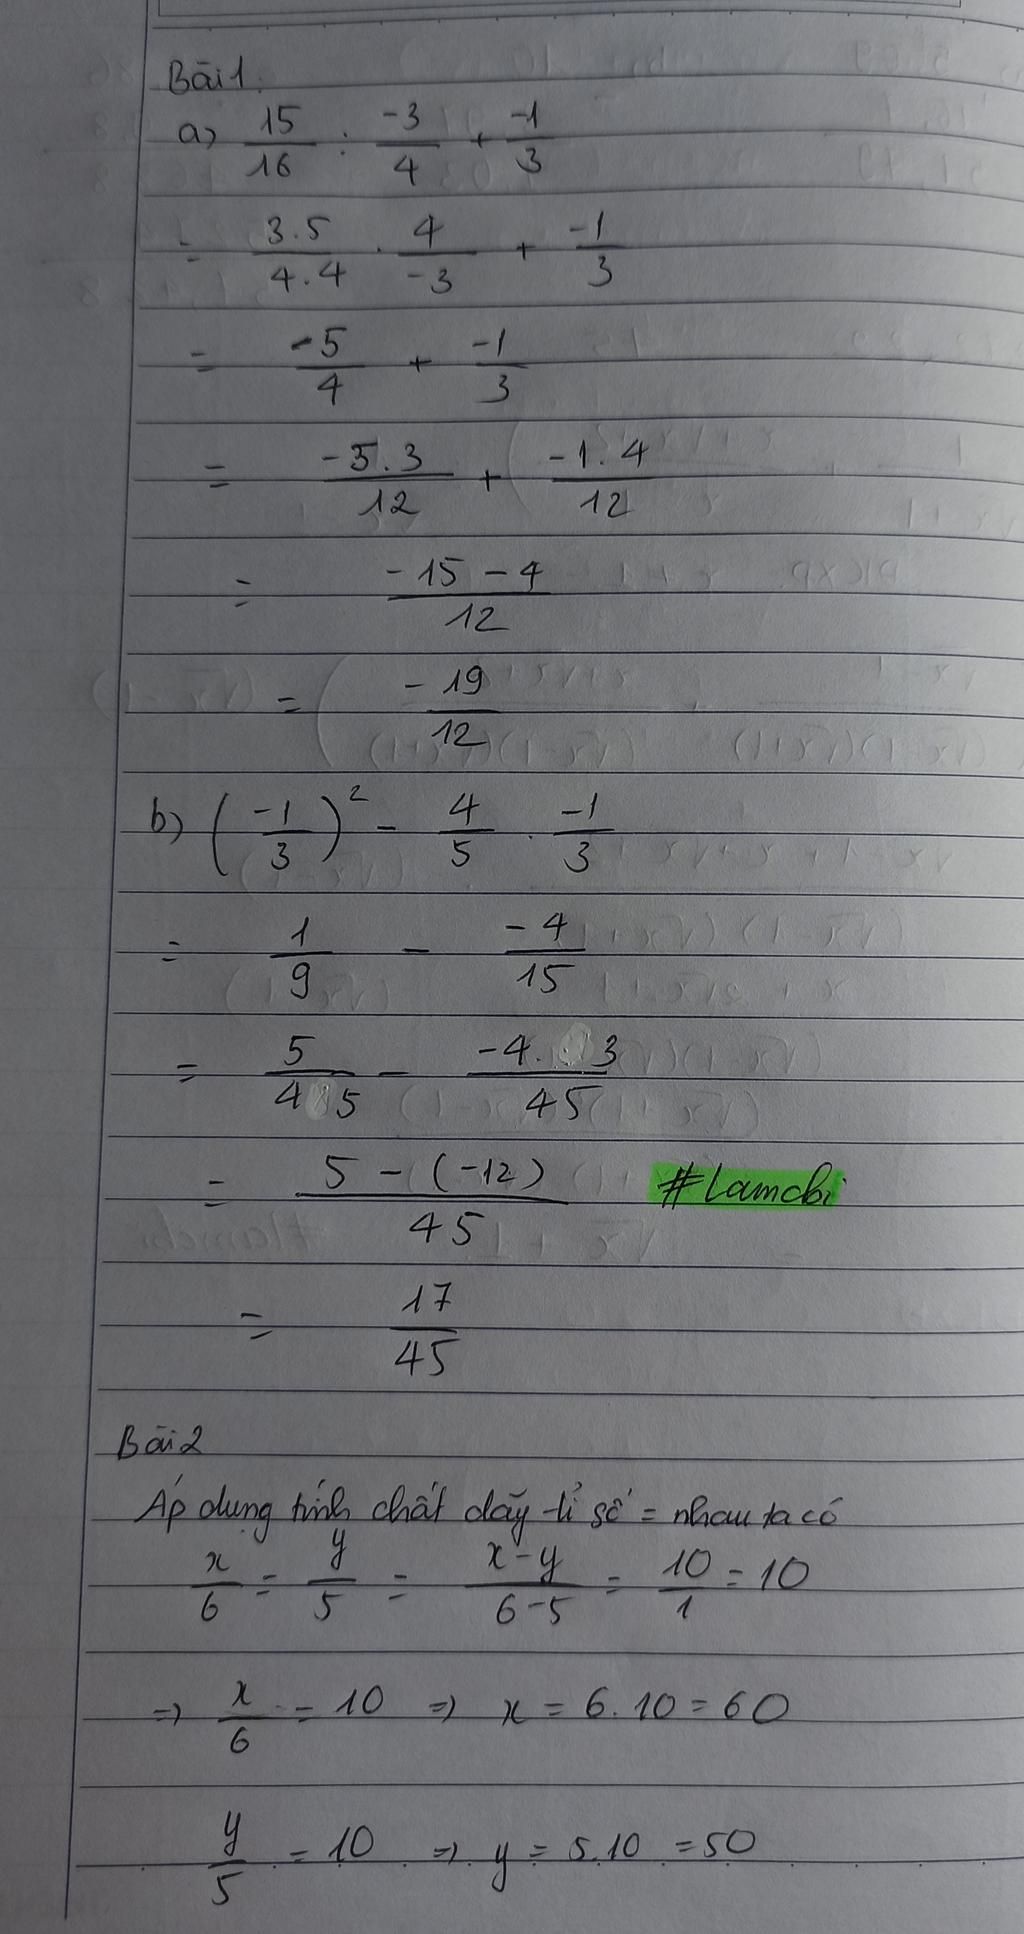 Bài 1.
a) 15/16 : -3/4 + -1/3
= 3.5/4.4 . 4/-3 + -1/3
= -5/4 + -1/3
= -5.3/12 + -1.4/12
= -15-4/12
= -19/12
b) (-1/3)² - 4/5 . -1/3
= 1/9 - -4/15
= 5/45 - -4.3/45
= 5-(-12)/45 #lamchi
= 17/45
Bài 2
Áp dụng tính chất dãy tỉ số = nhau ta có
x/6 = y/5 = x-y/6-5 = 10/1 = 10
=> x/6 = 10 => x = 6.10 = 60
y/5 = 10 => y = 5.10 = 50